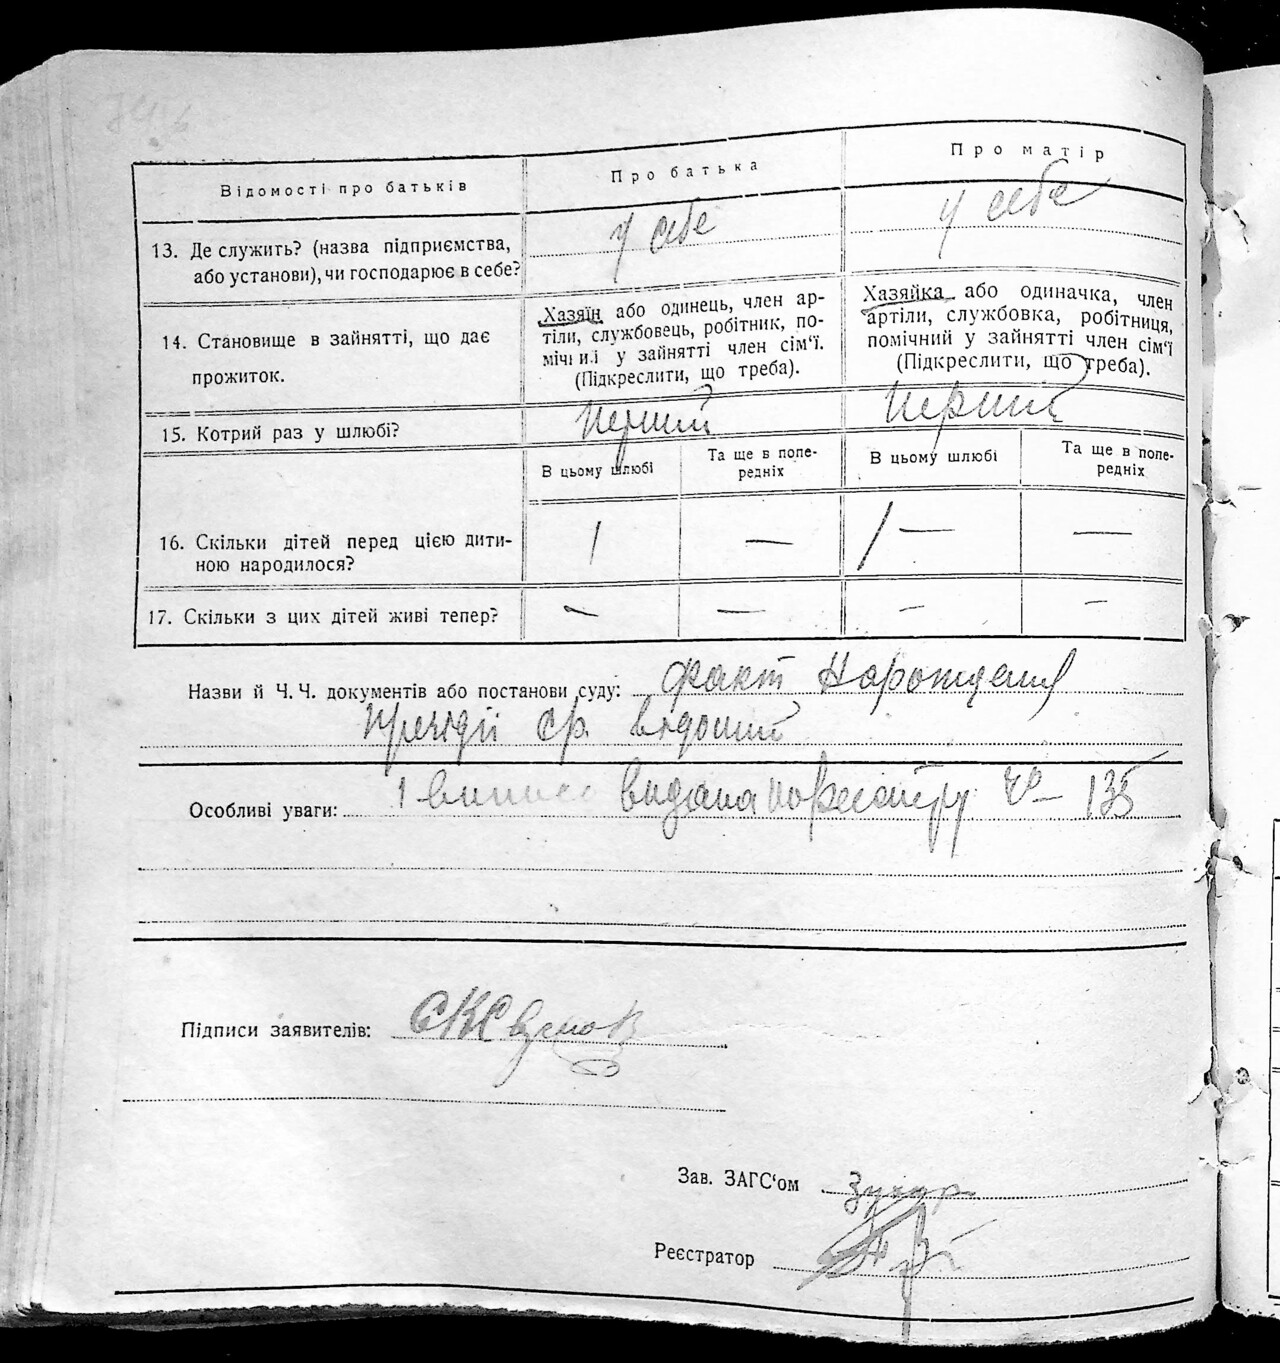 Відомості про батьків
Про батька
Про матір
13. Де служить? (назва підприємства, або установи), чи господарює в себе?
у себе
у себе
14. Становище в зайнятті, що дає прожиток.
Хазяїн або одинець, член ар-
тіли, службовець, робітник, по-
мічний у зайнятті член сім'ї.
(Підкреслити, що треба).
Хазяйка або одиначка, член
артіли, службовка, робітниця,
помічний у зайнятті член сім'ї
(Підкреслити, що треба).
15. Котрий раз у шлюбі?
Перший
Перший
В цьому шлюбі
Та ще в попе-
редніх
В цьому шлюбі
Та ще в попе-
редніх
16. Скільки дітей перед цією дити-
ною народилося?
1 — 1 — —
17. Скільки з цих дітей живі тепер?
— — — —
Назви й Ч. Ч. документів або постанови суду: факт Нарождения
Президії с/р. відомий
Особливі уваги: 1 випис видана по Реєстру Чо — 135
Підписи заявителів:
Зав. ЗАГС'ом
Реєстратор